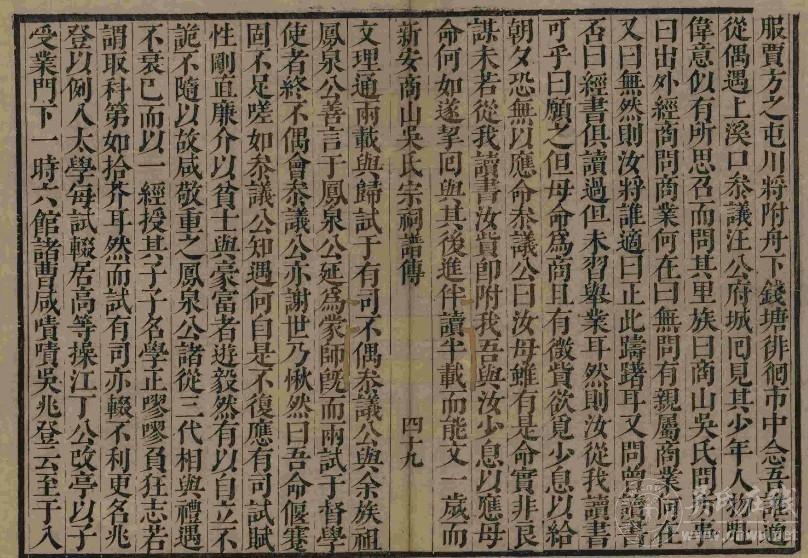 服賈方之屯川將附舟下錢塘徘徊市中念吾何適
從偶遇上溪口叅議汪公府城囘見其少年人物閒
偉意似有所思召而問其里族曰商山吳氏問所事
曰出外經商問商業何在曰無問有親屬商業何在
又曰無然則汝將誰適曰止此躊躇耳又問曾讀書
否曰經書俱讀過但未習舉業耳然則汝從我讀書
可乎曰願之但母命為商且有微貲欲覓少息以給
朝夕恐無以應命叅議公曰汝母雖有是命實非良
謀未若從我讀書汝貲即附我吾與汝少息以應母
命何如遂挈囘與其後進伴讀半載而能文一歲而
新安商山吳氏宗祠譜傳 四十九
文理通兩載與歸試于有司不偶叅議公與余族祖
鳳泉公善言于鳳泉公延為蒙師旣而兩試于督學
使者終不偶會叅議公亦謝世乃愀然曰吾命偃蹇
固不足嗟如叅議公知遇何自是不復應有司試賦
性剛直廉介以貧士與豪富者遊毅然有以自立不
詭不隨以故咸敬重之鳳泉公諸從三代相與禮遇
不衰已而以一經授其子子名學正嘐嘐負狂志若
謂取科第如拾芥耳然而試有司亦輙不利更名兆
登以例入太學每試輙居高等操江丁公改亭以子
受業門下一時六館諸曹咸嘖嘖吳兆登云至于入